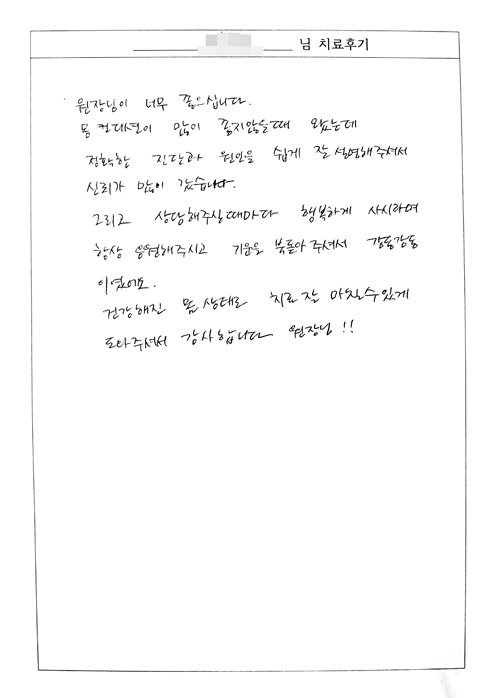 님 치료후기
원장님이 너무 좋으십니다.
몸 컨대션이 많이 좋지않을때 왔는데
정확한 진단과 원인을 쉽게 잘 설명해주셔서
신뢰가 많이 갔습니다.
그리고 상담해주실때마다 행복하게 사시라며
항상 응원해주시고 기운을 북돋아 주셔서 감동감동
이였어요.
건강해진 몸 상태로 치료 잘 마칠수있게
도와주셔서 감사합니다 원장님 !!